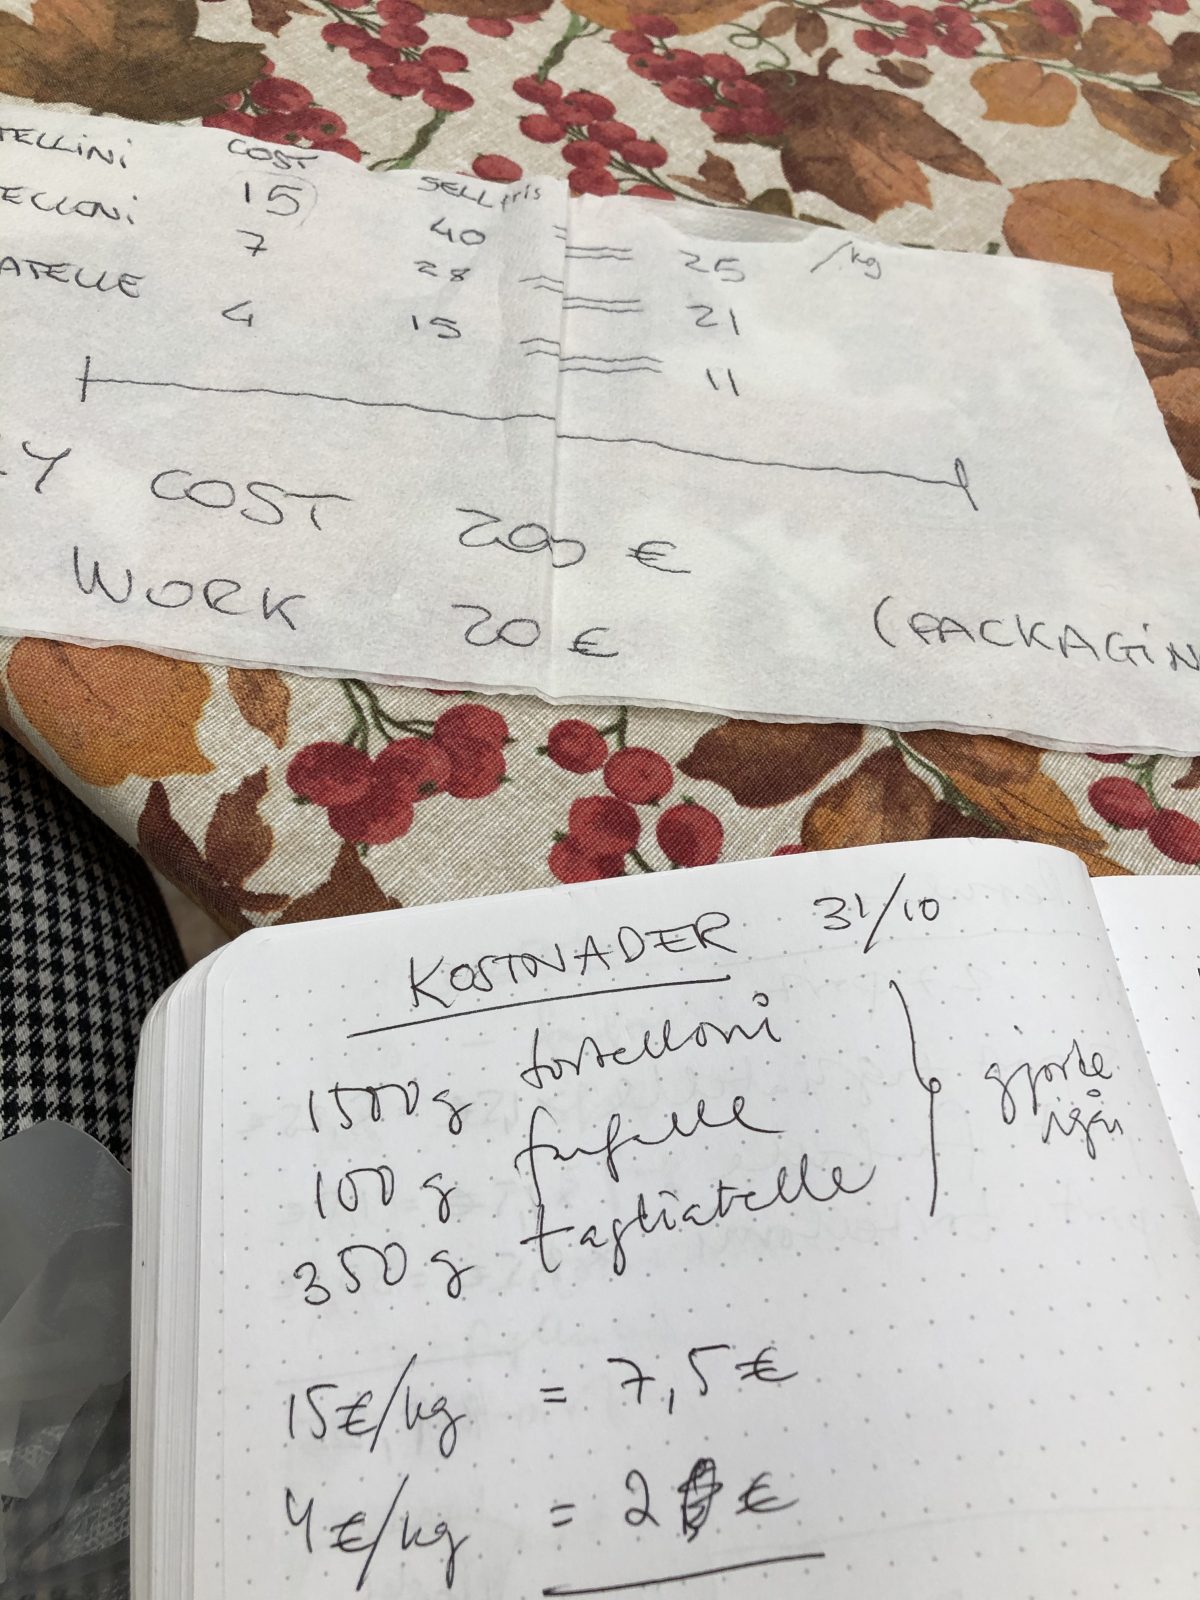 TELLINI COST SELL pris
ELLONI 15 40 25 /kg
ATELLE 7 28 21
4 15 11
LY COST 200 €
WORK 20 € (PACKAGIN
KOSTNADER 31/10
1500g tortelloni
100g farfalle
350g tagliatelle
gjorde
igår
15€/kg = 7,5€
4€/kg = 2 €